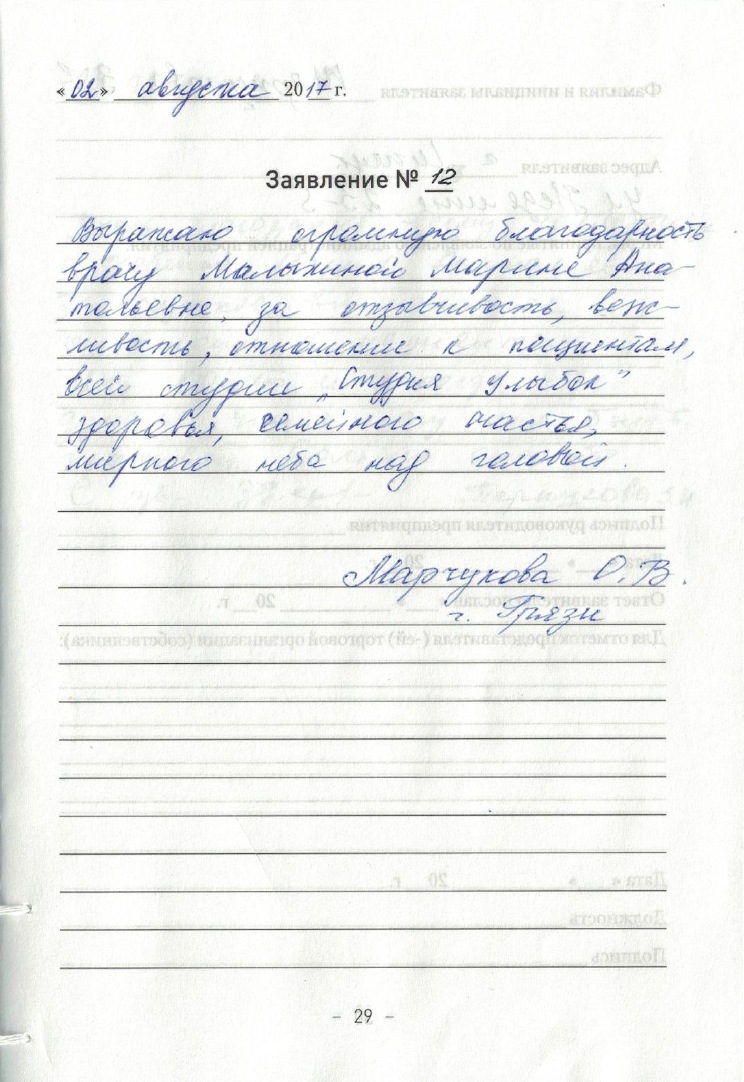 «02» августа 2017 г.
Заявление № 12
Выражаю огромную благодарность
врачу Малыхиной Марине Ана-
тольевне, за отзывчивость, веж-
ливость, отношение к пациентам,
всей студии „Студия улыбок"
здоровья, семейного счастья,
мирного неба над головой.
Марчукова О.В.
г. Грязи
- 29 -